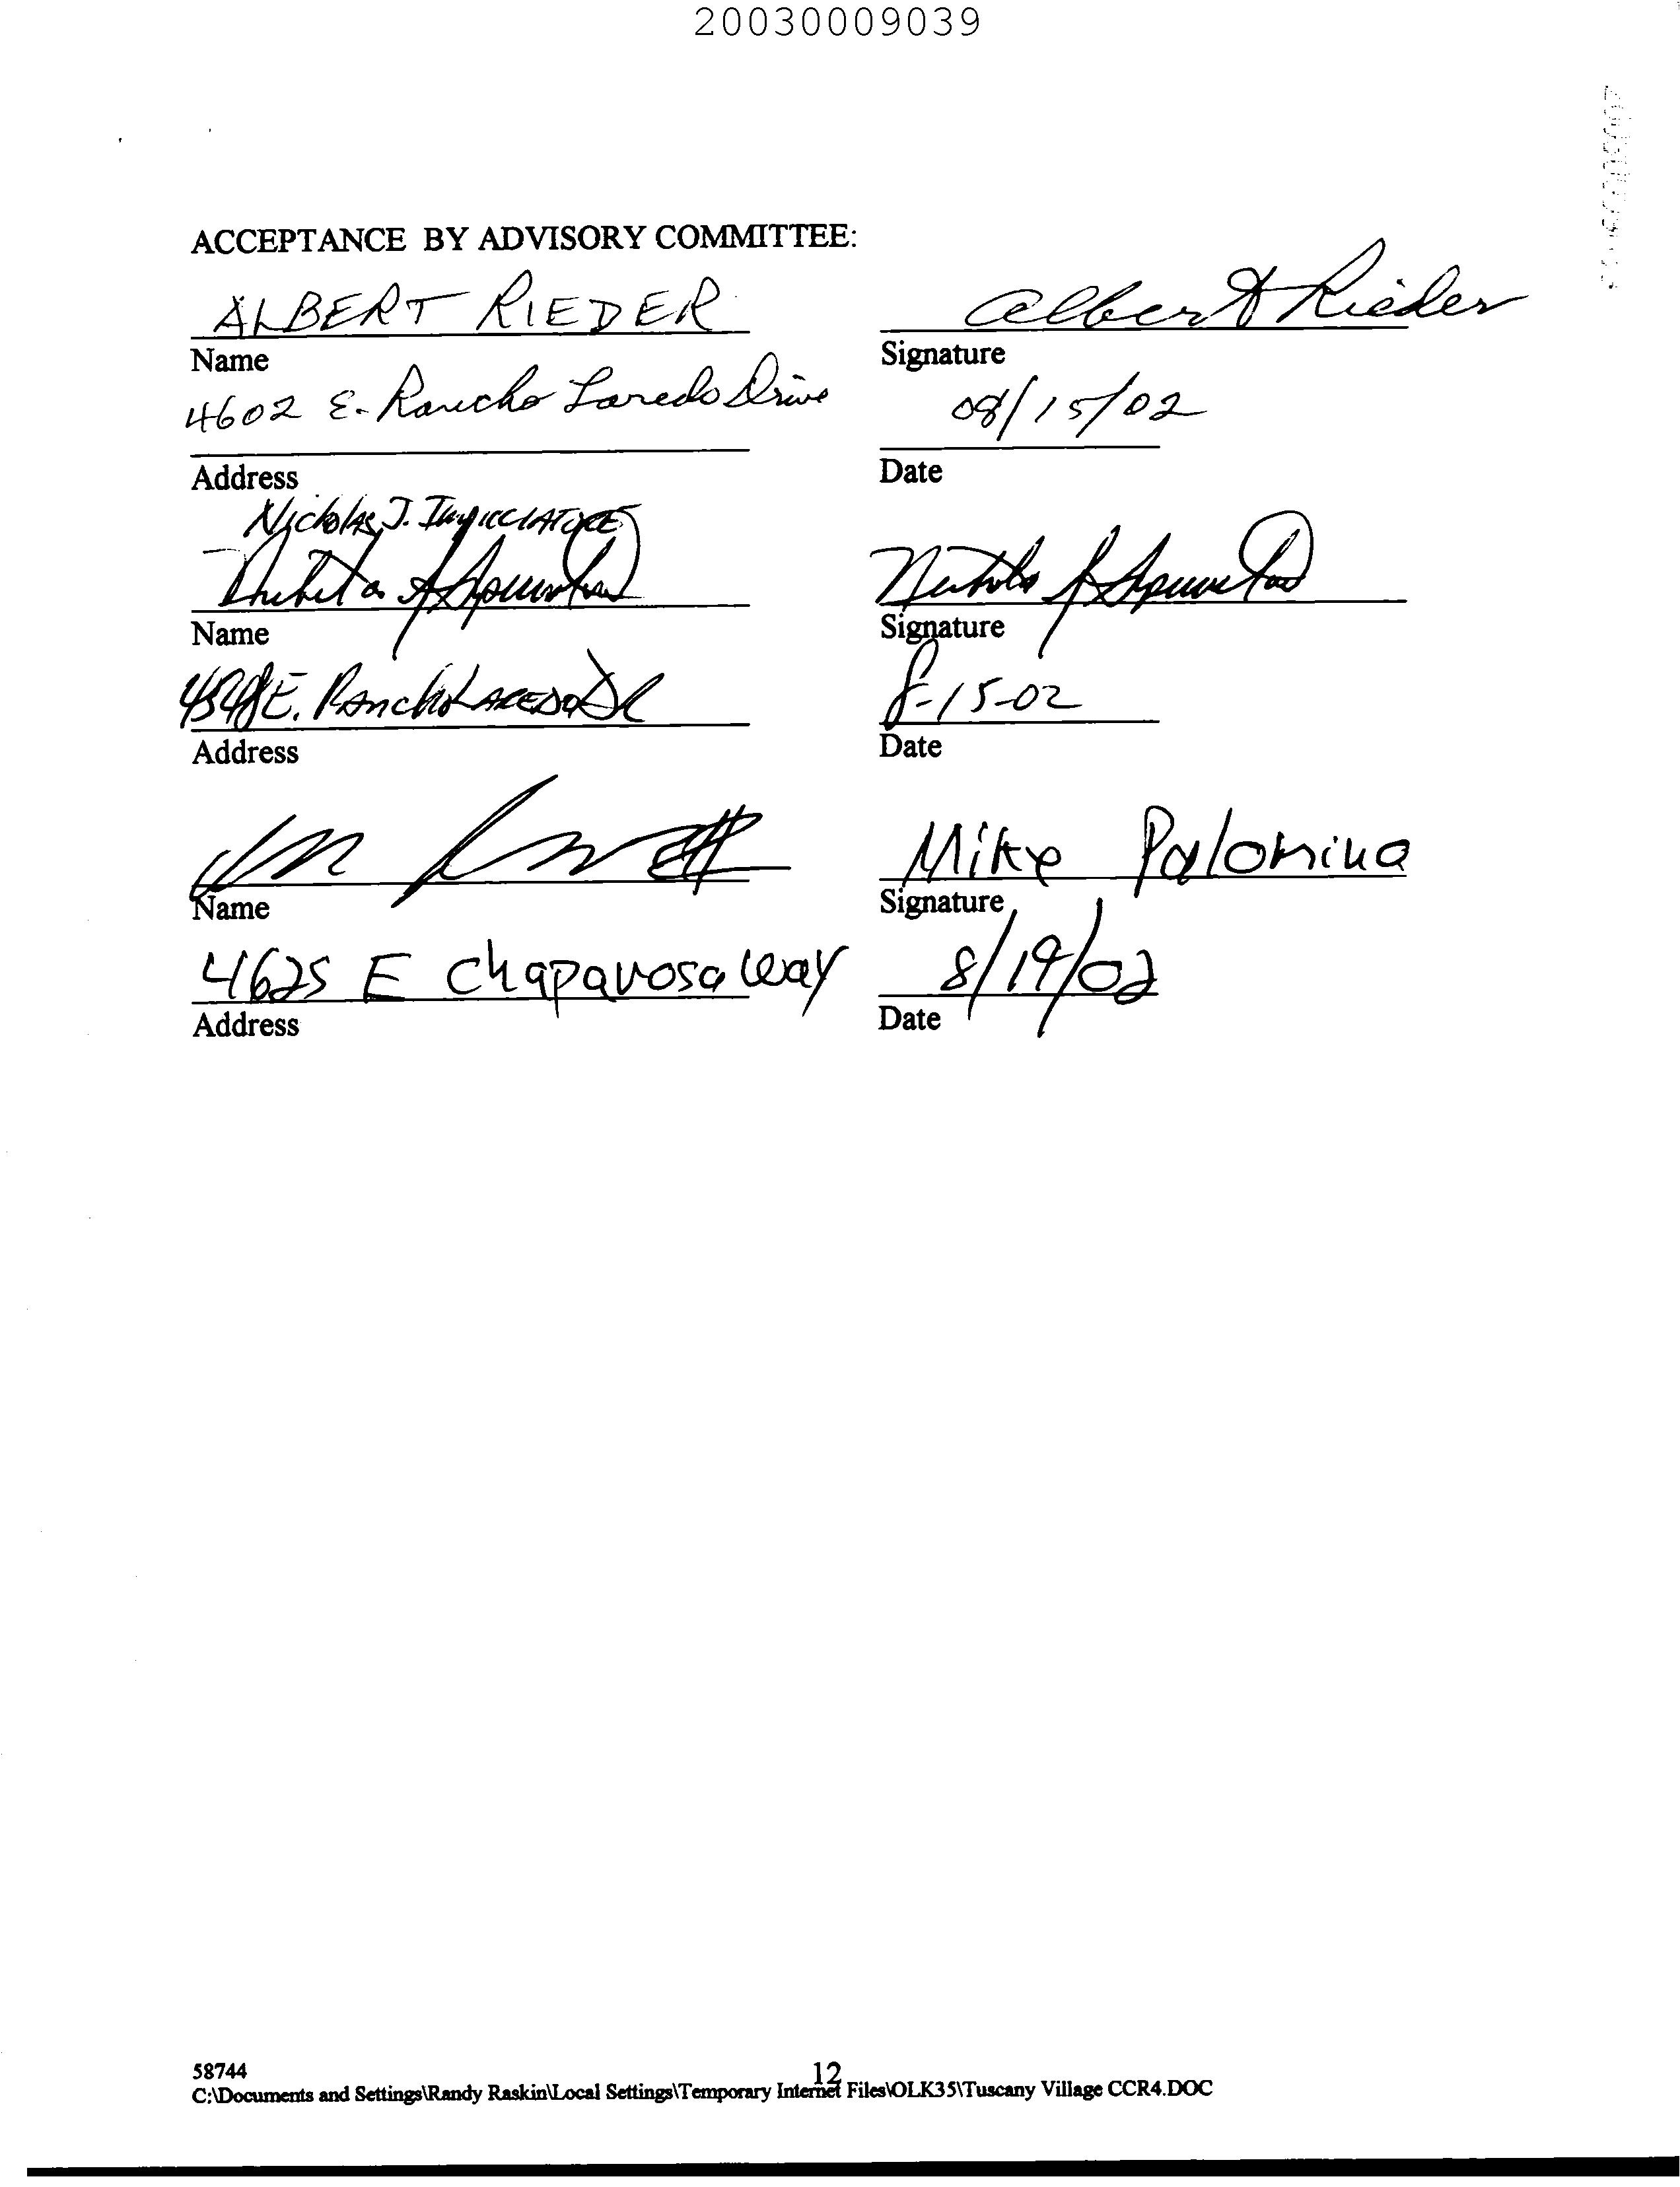 20030009039
ACCEPTANCE BY ADVISORY COMMITTEE:
ALBERT RIEDER
Albert Rieder
Name
Signature
4602 E. Rancho Laredo Drive
08/15/02
Address
Date
Nicholas J.
Name
Signature
E. Rancho Laredo DR
8-15-02
Address
Date
Mike Palomina
Name
Signature
4625 E Chaparosa way
8/19/02
Address
Date
58744
12
C:\Documents and Settings\Randy Raskin\Local Settings\Temporary Internet Files\OLK35\Tuscany Village CCR4.DOC